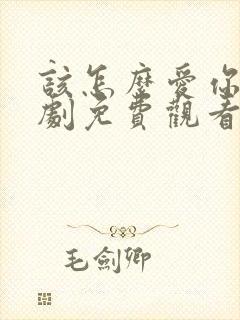 該怎麼愛你
劇免費觀看
毛劍卿